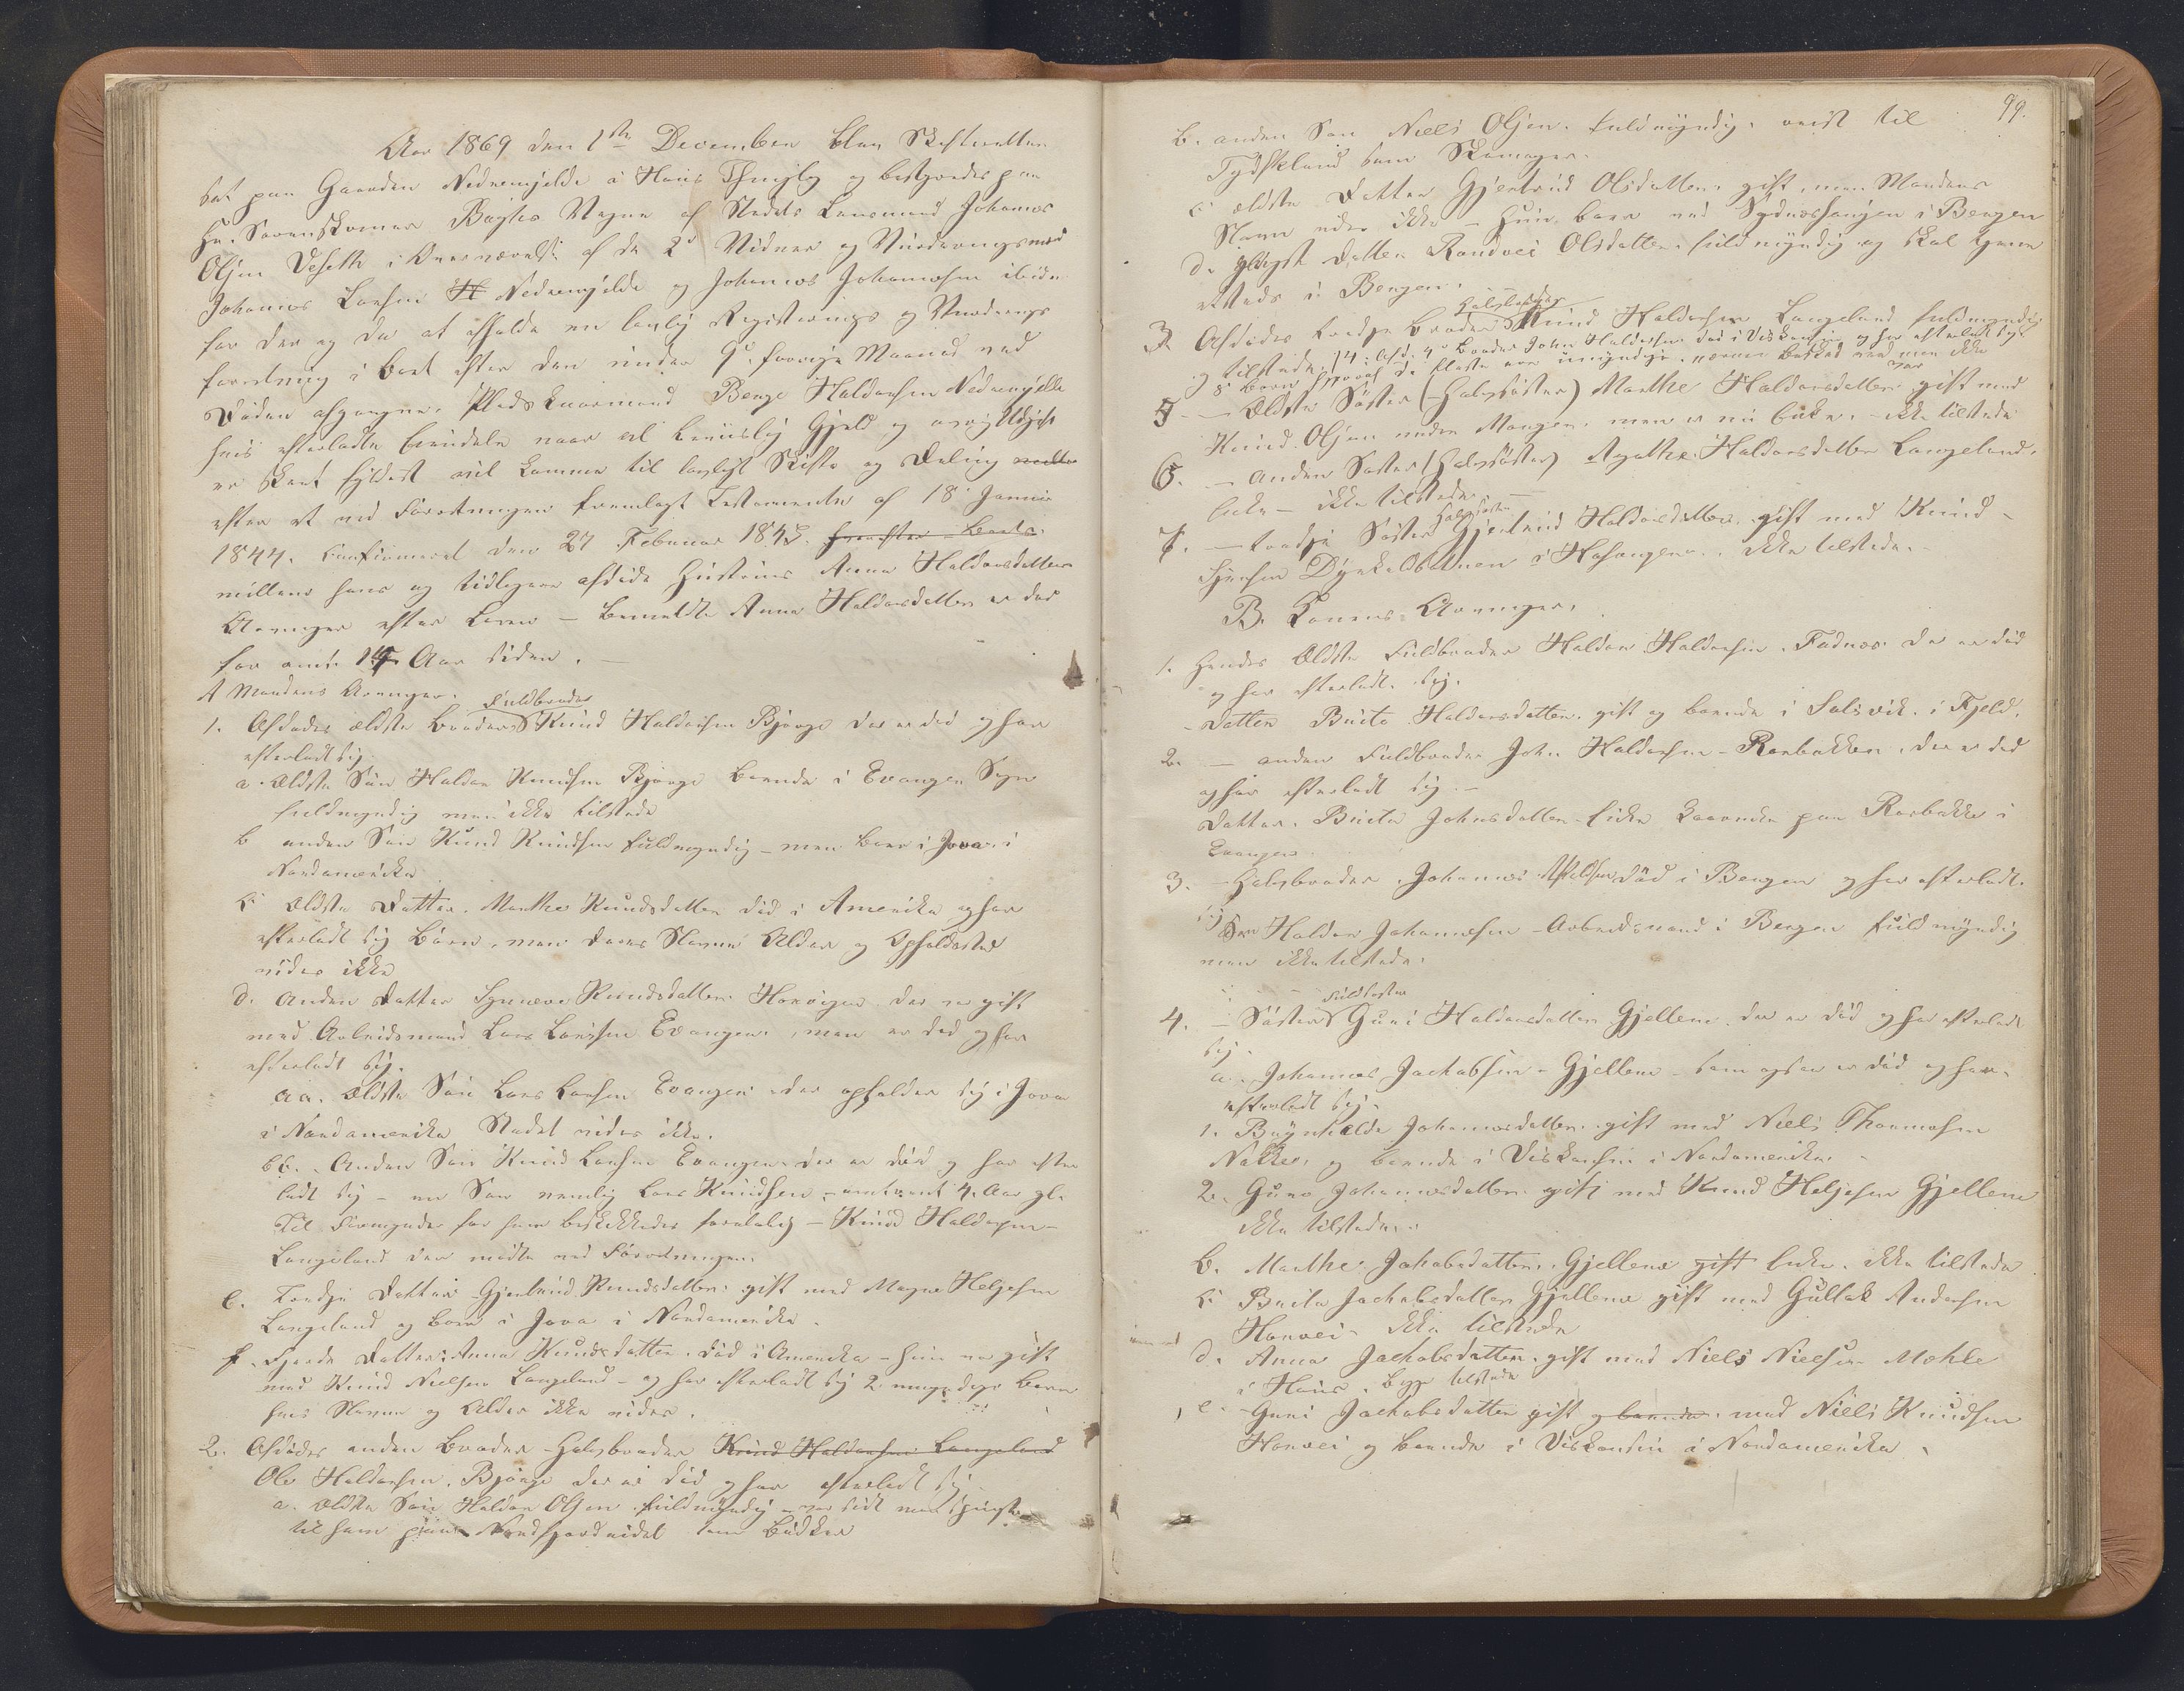 Aar 1869 den 1ste December blev Skifteretten
sat paa Gaarden Nedremjelde i Haus Thinglag og bestyredes paa
Hr. Sorenskriver Bøghs Vegne af Stedets Lensmand Johannes
Olsen Veseth i Overværelse af de 2de Vidner og Vurderingsmænd
Johannes Larsen H Nedremjelde og Johannes Johannesen ibidem
for der og da at afholde en lovlig Registrerings og Vurderings
forretning i Boet efter den under 9de forrige Maaned ved
Døden afgangne Pladskaarmand Berge Haldorsen Nedremjelde
hvis efterladte Eiendele naar al beviislig Gjeld og
er skeet fyldest vil komme til lovligt Skifte og Deling mellem
efter et ved Forretningen fremlagt Testamente af 18de Januar
1844. Confirmeret den 27 Februar 1845.
mellem hans og tidligere afdøde Hustrues Anna Haldorsdatters
Arvinger efter Loven - bemeldte Anna Haldorsdatter er død
for omtr. 14 Aar siden. -
A Mandens Arvinger.
Fuldbroder
1. Afdødes ældste Broder Knud Haldorsen Bjørge der er død og har
efterladt sig
a. Ældste Søn Haldor Knudsen Bjørge boende i Evanger Sogn
fuldmyndig men ikke tilstede
b anden Søn Knud Knudsen fuldmyndig - men boer i Jova i
Nordamerika
c. Ældste Datter. Marthe Knudsdatter død i Amerika og har
efterladt sig Børn, men deres Navne Alder og Opholdssted
vides ikke
d. Anden Datter Synneve Knudsdatter Horvigen der er gift
med Arbeidsmand Lars Larsen Evanger, men er død og har
efterladt sig.
aa. Ældste Søn Lars Larsen Evanger der opholder sig i Jova
i Nordamerika Stedet vides ikke.
bb. Anden Søn Knud Larsen Evanger der er død og har efter
ladt sig - en Søn nemlig Lars Knudsen - omtrent 4 Aar gl.
Til Formynder for ham beskikkedes foreløbig - Knud Haldorsen
Langeland der mødte ved Forretningen.
e. Tredje Datter Gjertrud Knudsdatter gift med Magne Heljesen
Langeland og boer i Jova i Nordamerika.
f. Fjerde Datter Anna Knudsdatter. død i Amerika - hun var gift
med Knud Nielsen Langeland - og har efterladt sig 2 umyndige Børn
hvis Navne og Alder ikke vides.
2. Afdødes anden Broder - Halvbroder Knud Haldorsen Langeland
Ole Haldorsen Bjørge der er død og har efterladt sig
a. Ældste Søn Haldor Olsen fuldmyndig - var sidst man spurgte
til ham paa Nordfjordeidet som Bødker
99.
b. anden Søn Niels Olsen. fuldmyndig. reist til
Tydskland som Skomager.
c. ældste Datter Gjertrud Olsdatter gift, men Mandens
Navn vides ikke - Hun boer ved Sydneshaugen i Bergen
d. yngst Datter Randvei Olsdatter. fuldmyndig og skal tjene
etsteds i Bergen.
Halvbroder
3. Afdødes tredje Broder Knud Haldorsen Langeland fuldmyndig
og tilstede. / 4. Afd. 4de Broder John Haldorsen død i Viskonsin og har efterladt sig
8 Børn hvoraf de fleste ere umyndige. nærmere Besked med men ikke
5 - Ældste Søster (Halvsøster) Marthe Haldorsdatter gift med
Knud Olsen nedre Manger. men er nu Enke. - ikke tilstede
6. - anden Søster (Halvsøster) Agathe Haldorsdatter Langeland.
Enke - ikke tilstede -
Halvsøster
7. - tredje Søster Gjertrud Haldorsdatter gift med Knud
Dyrkolbotnen i Hosanger. Ikke tilstede.
B. Konens Arvinger.
1. Hendes Ældste Fuldbroder Haldor Haldorsen Fadnes der er død
og har efterladt sig.
Datter Brita Haldorsdatter. gift og boende i Solsvik i Fjeld.
2. - anden Fuldbroder John Haldorsen - Rørbakken. der er død
og har efterladt sig. -
Datter. Brita Johnsdatter Enke boende paa Rørbakke i
Evanger.
3. - Halvbroder Johannes død i Bergen og har efterladt
sig Søn Haldor Johannesen - Arbeidsmand i Bergen fuldmyndig
men ikke tilstede.
Fuldsøster
4. - Søster Guri Haldorsdatter Gjellene der er død og har efterladt
sig.
a. Johannes Jachobsen - Gjellene - som ogsaa er død og har
efterladt sig.
1. Brynhilda Johannesdatter. gift med Niels Thormosen
og boende i Viskonsin i Nordamerika.
2. Guro Johannesdatter gift med Knud Heljesen Gjellene
ikke tilstede.
b. Marthe Jakobsdatter. Gjellene gift Enke. ikke tilstede
c. Brita Jachobsdatter Gjellene gift med Gullak Andersen
Horvei - ikke tilstede
d. Anna Jachobsdatter gift med Niels Nielsen Mohle
i Haus. begge tilstede
e. Guri Jachobsdatter gift og boende med Niels Knudsen
Horvei og boende i Viskonsin i Nordamerika.